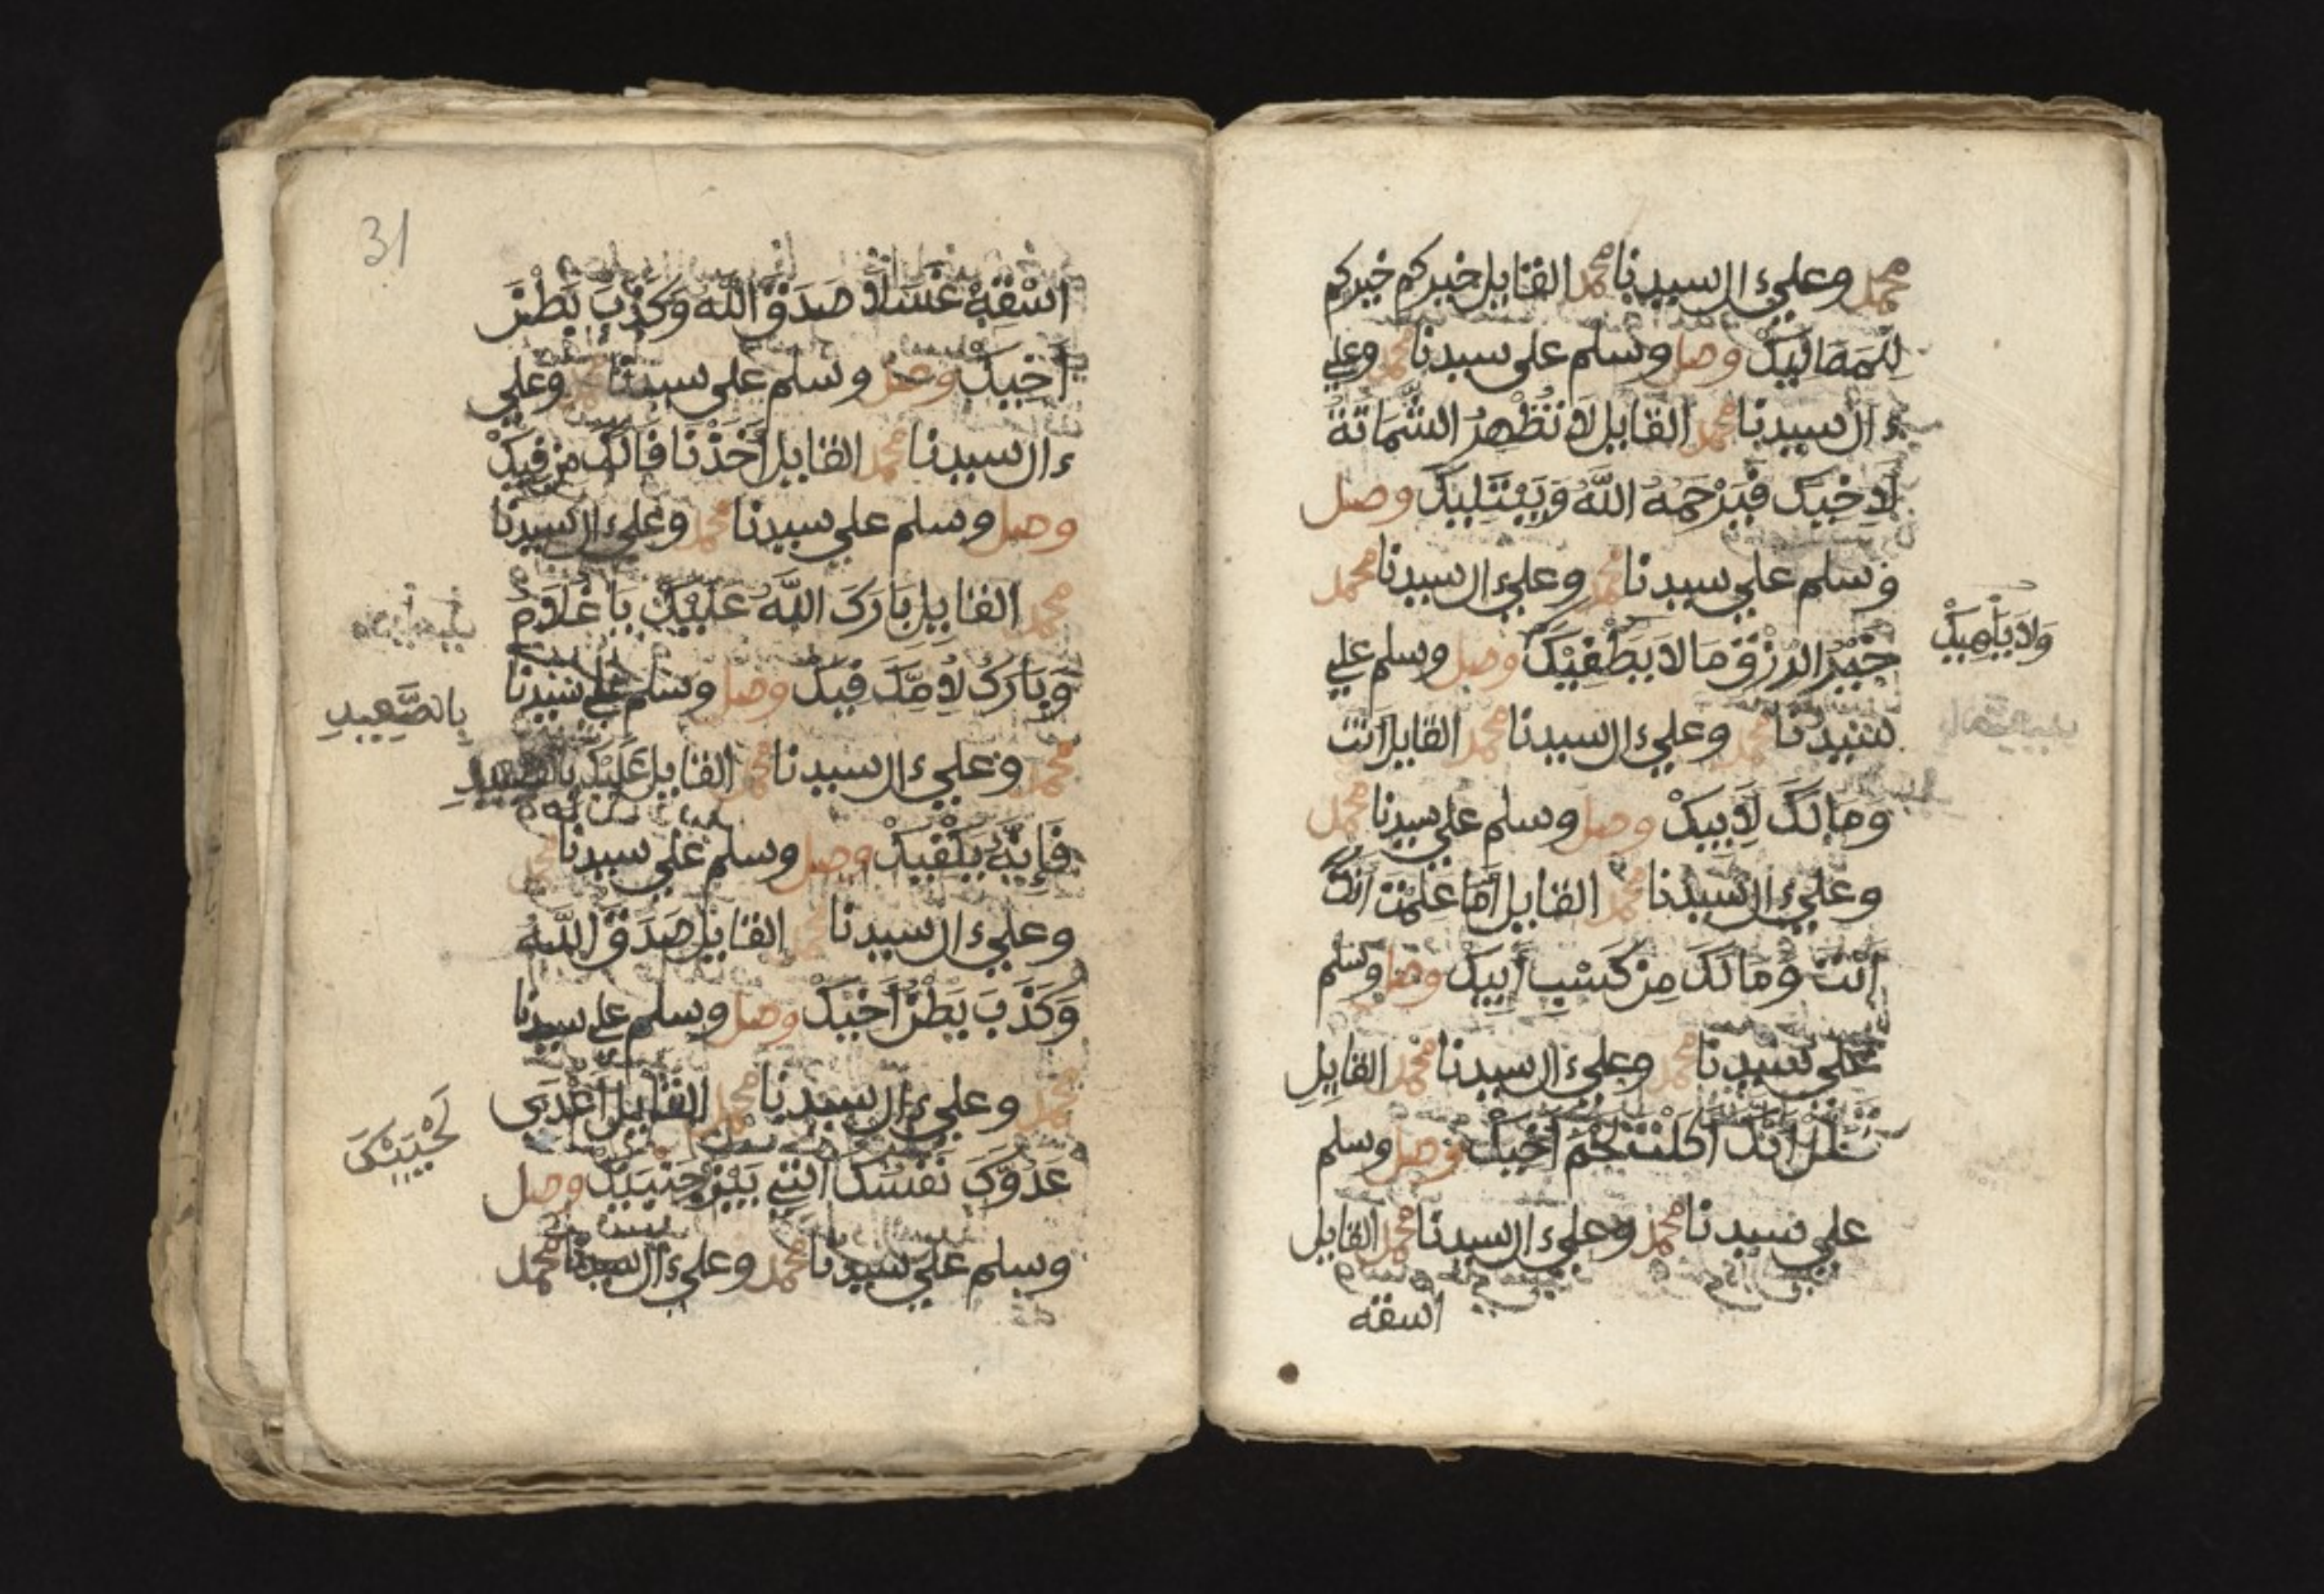 محمد وعلي ءال سيدنا محمد القايل خيركم خيركم
للمماليك وصل وسلم على سيدنا محمد وعلي
ءال سيدنا محمد القايل لَا تُظْهِرُ الشَّمَاتَةَ
لَاخِيكَ فَيَرْحَمُهُ اللَّهُ وَيَبْتَلِيكَ وصل
وسلم علي سيدنا محمد وعلي ءال سيدنا محمد
خَيْرُ الرِّزْقِ مَا لَا يَطْغِيكَ وصل وسلم علي
وَلَا يُلْهِيكْ
سيدنا محمد وعلي ءال سيدنا محمد القايل أَنْتَ
وَمَالُكَ لِأَبِيكْ وصل وسلم علي سيدنا محمد
وعلي ءال سيدنا محمد القايل أَمَا عَلِمْتَ أَنَّكَ
أَنْتَ وَمَالَكَ مِن كَسْبِ أَبِيكْ وصل وسلم
علي سيدنا محمد وعلي ءال سيدنا محمد القايل
أَكَلْتَ لَحْمَ أَخِيكْ وصل وسلم
علي سيدنا محمد وعلي ءال سيدنا محمد القايل
اسقه
31
اسْقِهْ عَسَلًا صَدَقَ اللَّهُ وَكَذَّبَ بَطْنَ
أَخِيكْ وصل وسلم علي سيدنا محمد وعلي
ءال سيدنا محمد القايل أَخَذْنَا فَالَكَ مِن فِيكْ
وصل وسلم علي سيدنا محمد وعلي ءال سيدنا
محمد القايل بَارَكَ اللَّهُ عَلَيْكَ يَا غُلَامُ
وَبَارَكَ لِأُمِّكَ فِيكْ وصل وسلم علي سيدنا
بِالصَّعِيدِ
محمد وعلي ءال سيدنا محمد القايل عَلَيْكَ بالصعيد
فَإِنَّهُ يَكْفِيكْ وصل وسلم علي سيدنا محمد
وعلي ءال سيدنا محمد القايل صَدَقَ اللَّهُ
وَكَذَّبَ بَطْنُ أَخِيكْ وصل وسلم علي سيدنا
محمد وعلي ءال سيدنا محمد القايل أَعْدَى
عَدُوِّكَ نَفْسُكَ الَّتِي بَيْنَ جَنْبَيْكْ وصل
وسلم علي سيدنا محمد وعلي ءال سيدنا محمد